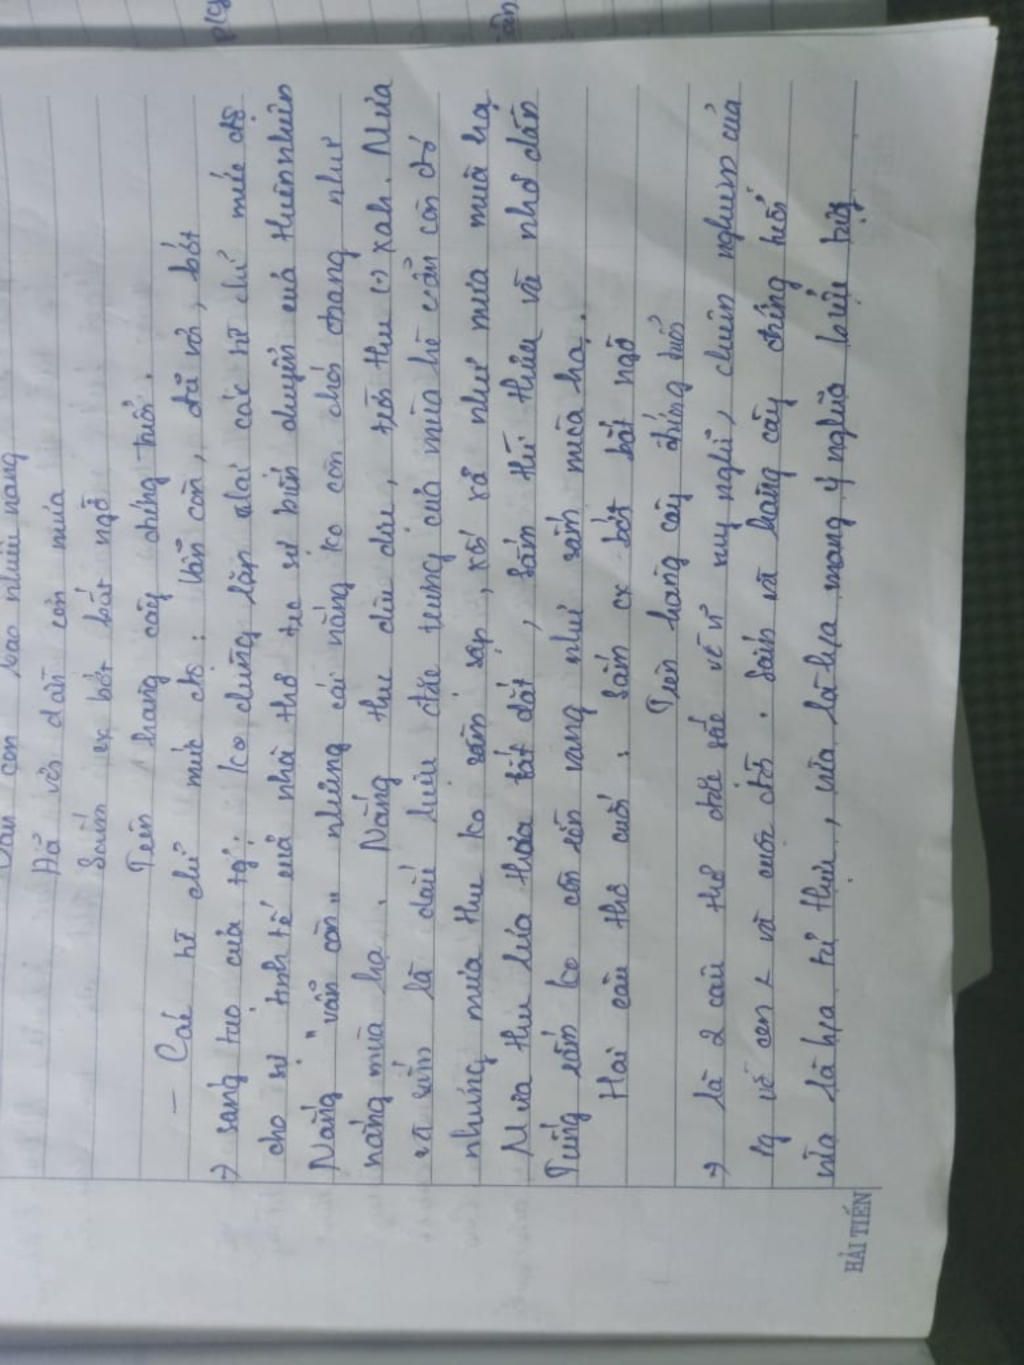 Vẫn còn bao nhiêu nắng
Đã vơi dần cơn mưa
Sấm cx bớt bất ngờ
Trên hàng cây đứng tuổi.
- Các từ chỉ mức độ: Vẫn còn, đã vơi, bớt
→ sáng tạo của tg: ko dừng lặp lại các từ chỉ mức độ
cho sự tinh tế mà nhà thơ sự biến chuyển của thiên nhiên
Nắng "vẫn còn" nhưng cái nắng ko còn chói chang như
nắng mùa hạ. Nắng thu dìu dịu, trời thu (-) xah. Mưa
và sấm là dấu hiệu đặc trưng của mùa hè vẫn còn đó
nhưng mưa thu ko sầm sập, xối xả như mưa mùa hạ
Mưa thu lưa thưa lất dất, sấm thì thưa và nhỏ dần
Tiếng sấm ko còn rền vang như sấm mùa hạ.
Hai câu thơ cuối: Sấm cx bớt bất ngờ
Trên hàng cây đứng tuổi
→ là 2 câu thơ đặc sắc về suy nghĩ, chiêm nghiệm của
tg về con ng và cuộc đời. Sấm và hàng cây đứng tuổi
vừa là h/a tả thực, vừa là h/a mang ý nghĩa biểu tượg
HẢI TIẾN